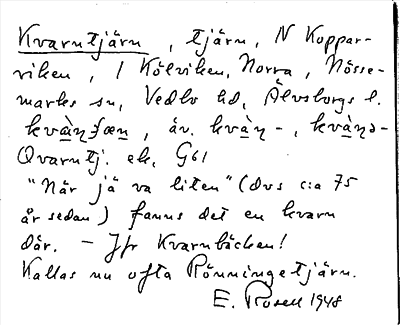 Kvarntjärn, tjärn, N Koppar-
viken, i Kölviken, Norra, Nösse-
marks sn, Vedbo hd, Älvsborgs l.
kvàṇʃæṇ, äv. kvàṇ-, kvàṇə-
Qvarntj. ek. G61
"När jä va liten" (dvs c:a 75
år sedan) fanns det en kvarn
där. – Jfr Kvarnbäcken!
Kallas nu ofta Rönningetjärn.
E. Rosell 1948